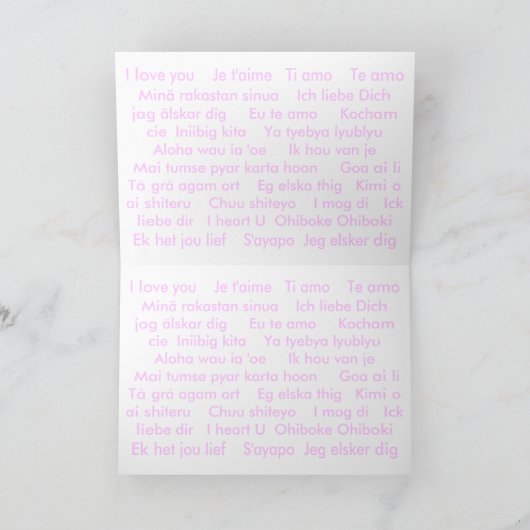 I love you Je t'aime Ti amo Te amo
Minä rakastan sinua Ich liebe Dich
jag älskar dig Eu te amo Kocham
cie Iniibig kita Ya tyebya lyublyu
Aloha wau ia 'oe Ik hou van je
Mai tumse pyar karta hoon Goa ai li
Tá grá agam ort Eg elska thig Kimi o
ai shiteru Chuu shiteyo I mog di Ick
liebe dir I heart U Ohiboke Ohiboki
Ek het jou lief S'ayapo Jeg elsker dig
I love you Je t'aime Ti amo Te amo
Minä rakastan sinua Ich liebe Dich
jag älskar dig Eu te amo Kocham
cie Iniibig kita Ya tyebya lyublyu
Aloha wau ia 'oe Ik hou van je
Mai tumse pyar karta hoon Goa ai li
Tá grá agam ort Eg elska thig Kimi o
ai shiteru Chuu shiteyo I mog di Ick
liebe dir I heart U Ohiboke Ohiboki
Ek het jou lief S'ayapo Jeg elsker dig